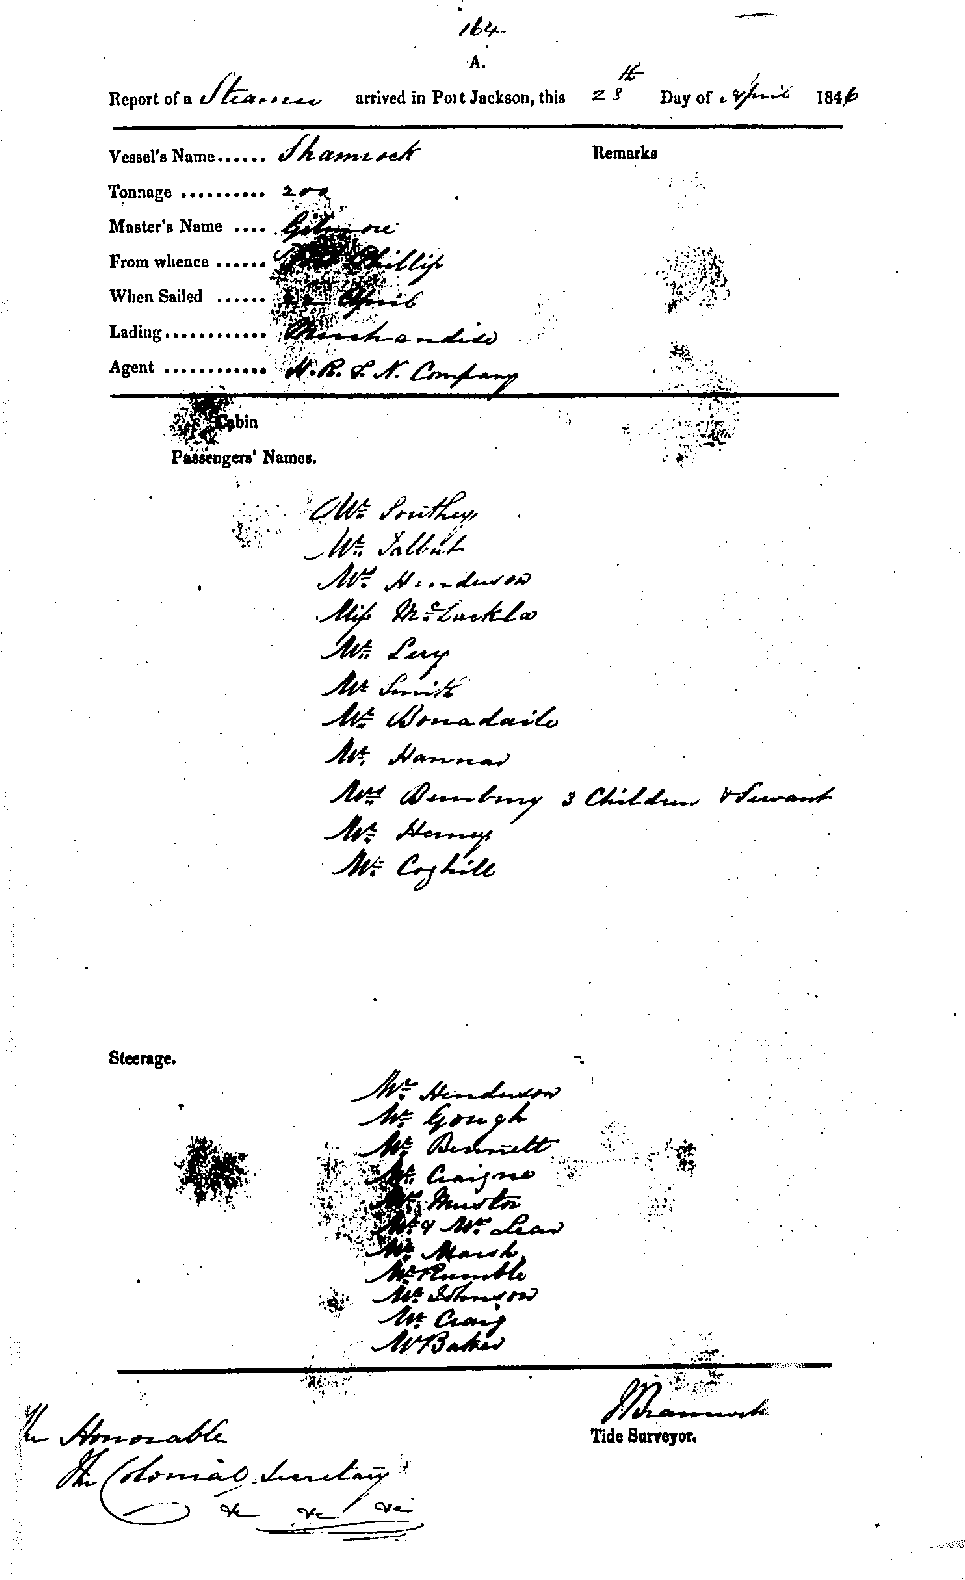 164
A.
Report of a Steamer arrived in Port Jackson, this 28th Day of April 1846
Vessel's Name...... Shamrock Remarks
Tonnage .......... 200
Master's Name .... Gilmore
From whence ...... Port Phillip
When Sailed ...... April
Lading............ Merchandise
Agent ............ H. R. S. N. Company
Cabin
Passengers' Names.
Mr Southey
Mr Talbot
Mrs Henderson
Miss
Mr Levy
Mr Smith
Mr Bonadaile
Mr Hannar
Mrs Bunbury 3 Children & Servant
Mr
Mr Coghill
Steerage.
Mr Henderson
Mr Gough
Mr Bennett
Mr Craigne
Muston
Mr & Mrs Lean
Mr Marsh
Mr Rumble
Mr Johnson
Mr Craig
Mr Baker
Tide Surveyor.
The Honorable
The Colonial Secretary
&c &c &c